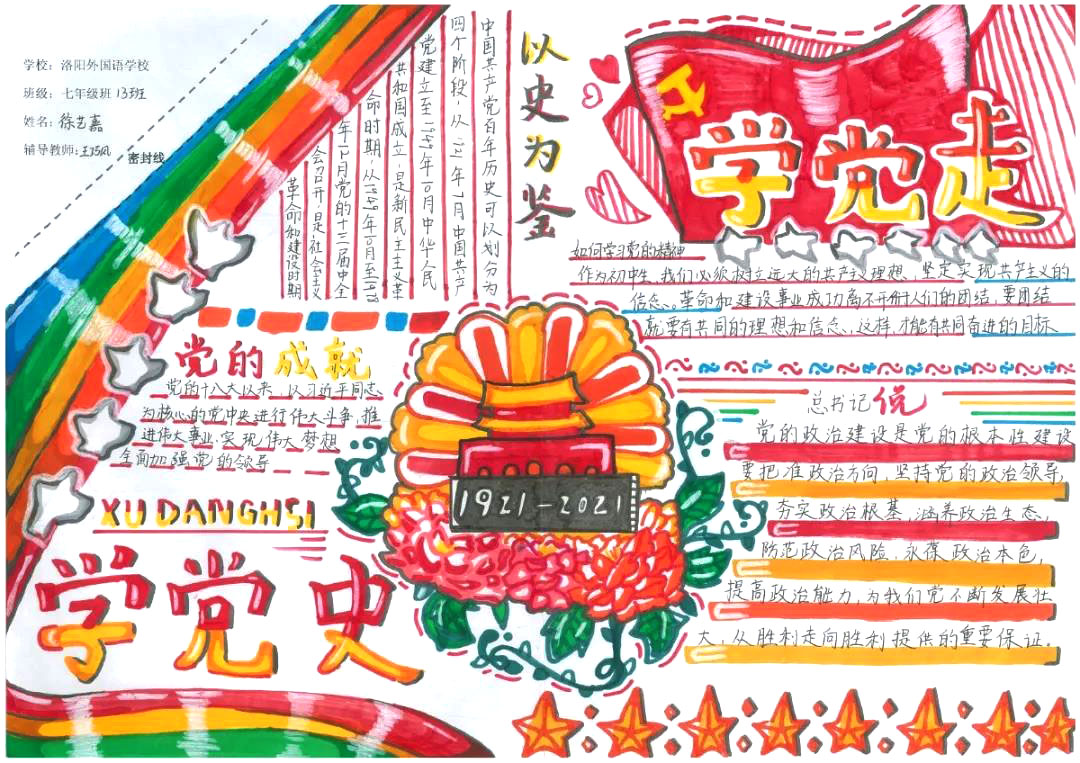 学校：洛阳外国语学校
班级：七年级班13班
姓名：徐艺嘉
辅导教师：王巧凤
密封线
以史为鉴
中国共产党百年历史可以划分为
四个阶段，从1921年7月中国共产
党建立至1949年10月中华人民
共和国成立，是新民主主义革
命时期，从1949年10月至197
年12月党的十三届中全
会召开，是社会主义
革命和建设时期
学党走
如何学习党的精神
作为初中生，我们必须树立远大的共产主义理想，坚定实现共产主义的
信念、革命和建设事业成功离不开人们的团结，要团结
就要有共同的理想和信念，这样，才能有共同奋进的目标
党的成就
党的十八大以来，以习近平同志
为核心的党中央进行伟大斗争，推
进伟大事业，实现伟大梦想
全面加强党的领导
XUDANGHSI
学党史
1921-2021
总书记说
党的政治建设是党的根本性建设
要把准政治方向，坚持党的政治领导，
夯实政治根基，涵养政治生态，
防范政治风险，永葆政治本色，
提高政治能力，为我们党不断发展壮
大，从胜利走向胜利提供的重要保证。